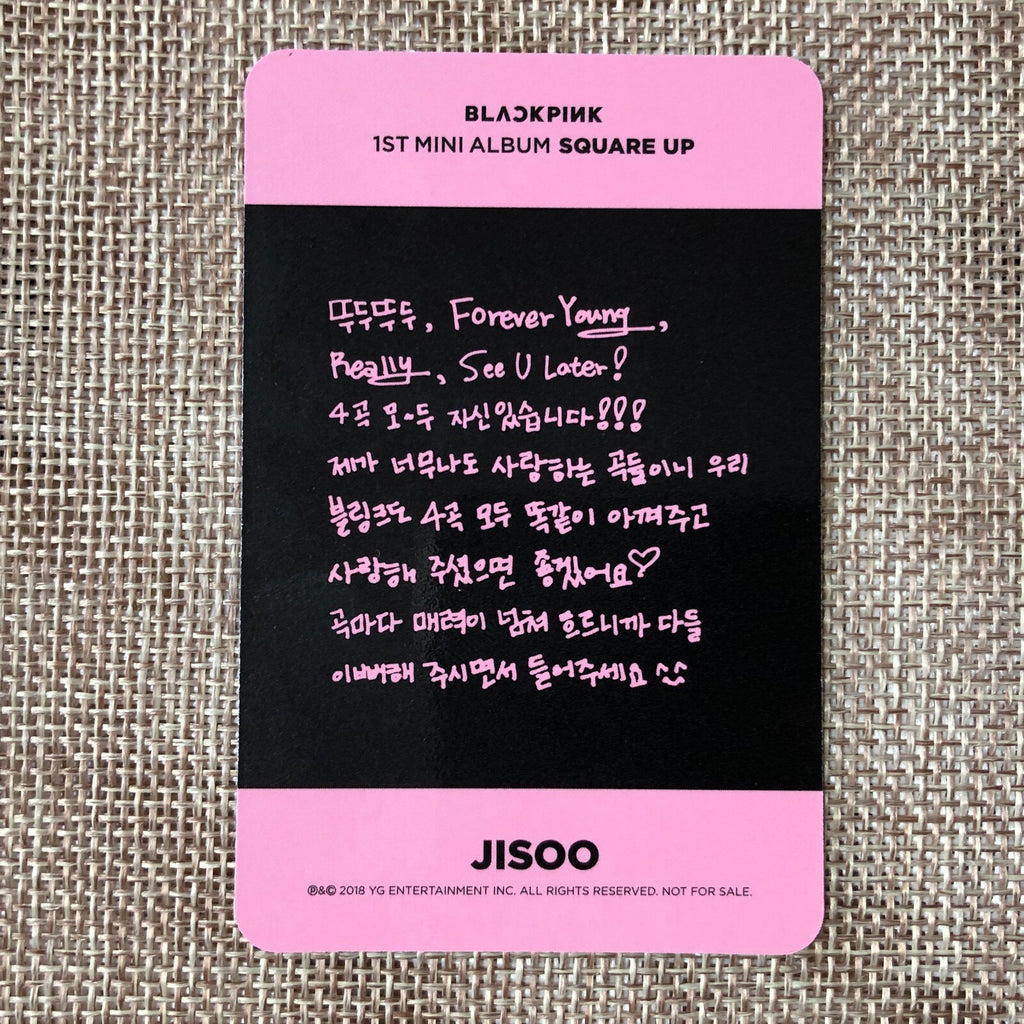 BLACKPINK
1ST MINI ALBUM SQUARE UP
뚜두뚜두, Forever Young,
Really, See U Later!
4곡 모~두 자신있습니다!!!
제가 너무나도 사랑하는 곡들이니 우리
블링크도 4곡 모두 똑같이 아껴주고
사랑해 주셨으면 좋겠어요♡
곡마다 매력이 넘쳐 흐르니까 다들
이뻐해 주시면서 들어주세요 ^^
JISOO
℗&© 2018 YG ENTERTAINMENT INC. ALL RIGHTS RESERVED. NOT FOR SALE.